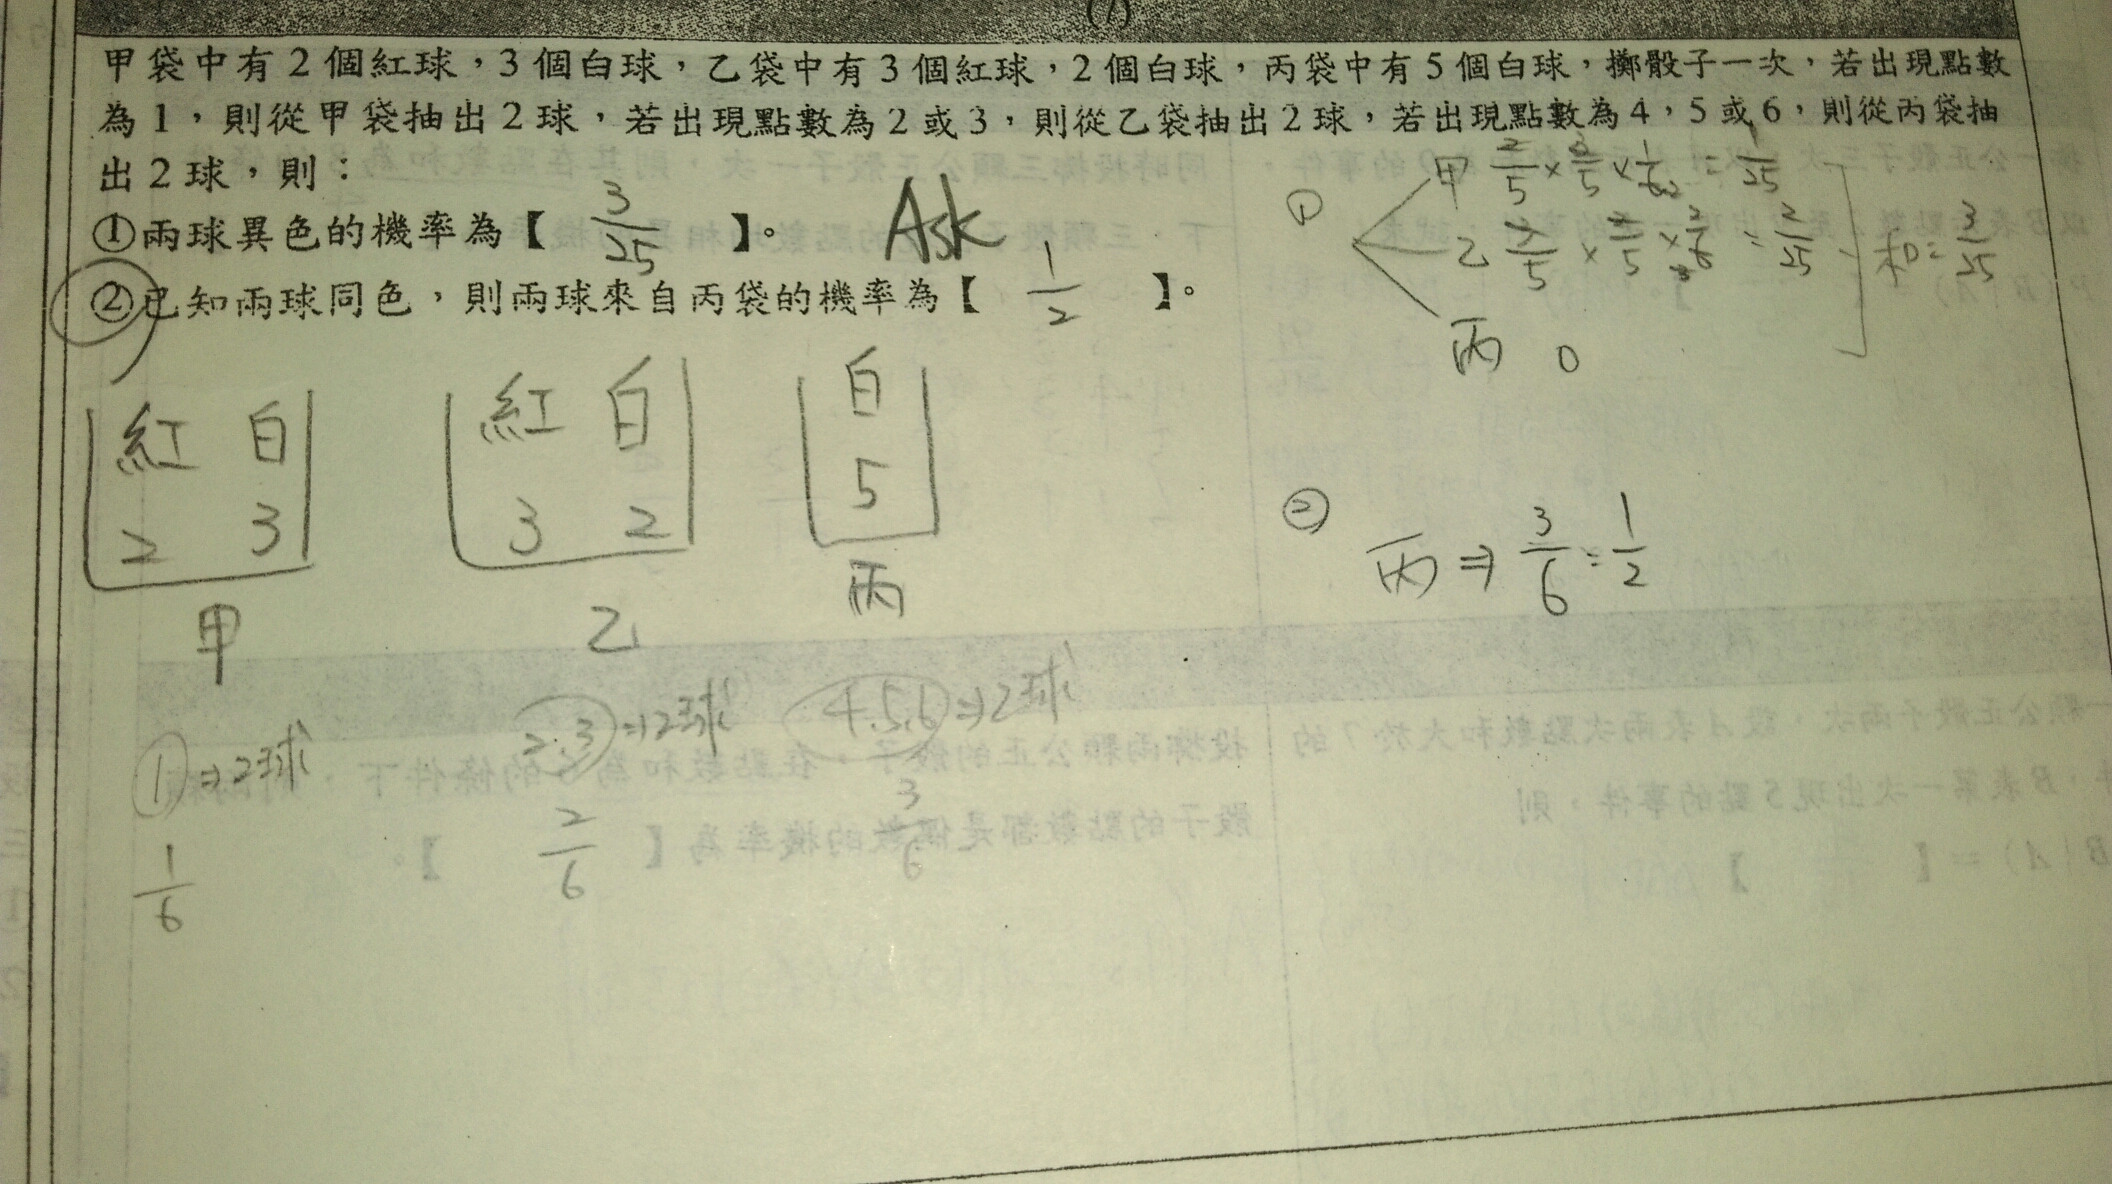 (7)
甲袋中有2個紅球，3個白球，乙袋中有3個紅球，2個白球，丙袋中有5個白球，擲骰子一次，若出現點數
為1，則從甲袋抽出2球，若出現點數為2或3，則從乙袋抽出2球，若出現點數為4，5或6，則從丙袋抽
出2球，則：
①兩球異色的機率為【 3/25 】。 Ask
②已知兩球同色，則兩球來自丙袋的機率為【 1/2 】。
①
甲 2/5 × 3/5 × 1/6 = 1/25
乙 3/5 × 2/5 × 2/6 = 2/25
和 = 3/25
丙 0
紅 白
2 3
甲
紅 白
3 2
乙
白
5
丙
②
丙 ⇒ 3/6 = 1/2
1 ⇒ 2球
1/6
2.3 ⇒ 2球
2/6
4.5.6 ⇒ 2球
3/6